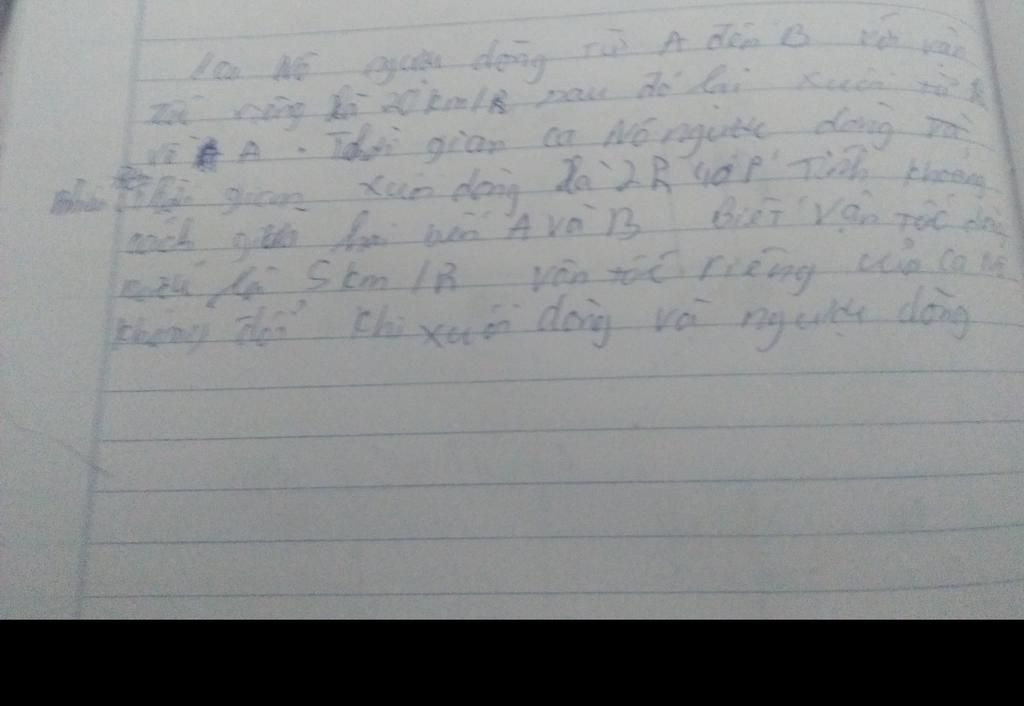 Ca Nô ngược dòng từ A đến B với vận
tốc riêng là 20 km/h sau đó lại xuôi từ B
về A. Thời gian ca Nô ngược dòng
thời gian xuôi dòng là 2h 40P Tính khoảng
cách giữa hai bến A và B Biết Vận tốc dòng
nước là 5 km/h vân tốc riêng của ca nô
không đổi khi xuôi dòng và ngược dòng